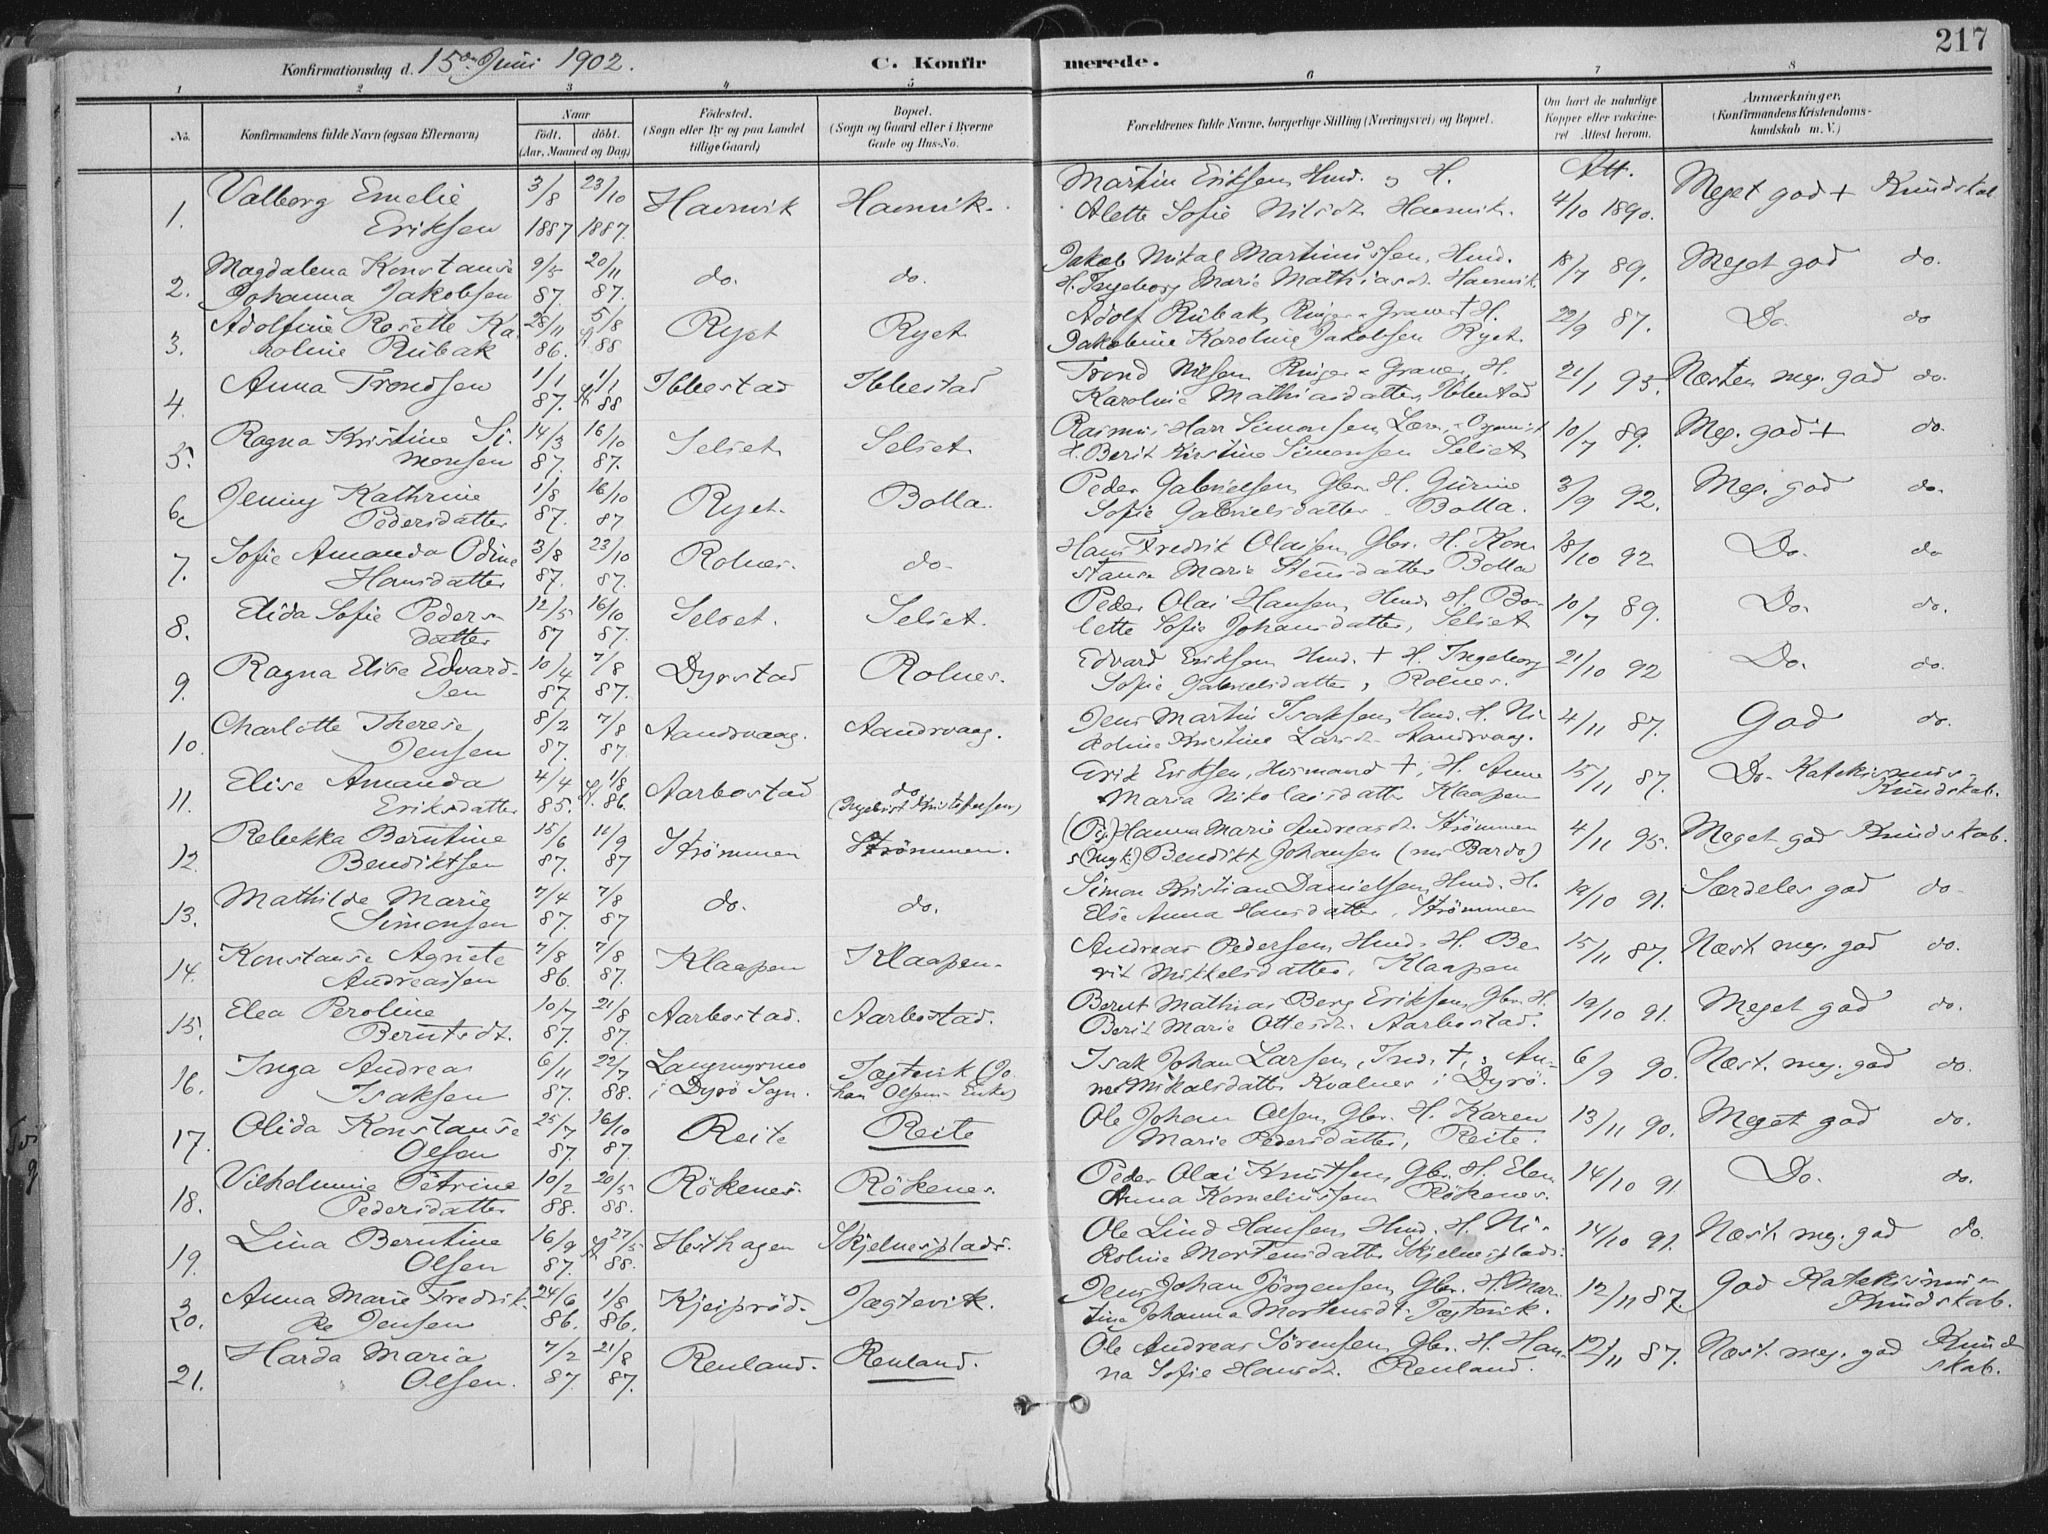 217
Konfirmationsdag d. 15de Juni 1902. C. Konfirmerede.
1 2 3 4 5 6 7 8
No. Konfirmandens fulde Navn (ogsaa Efternavn) Naar født, døbt. (Aar, Maaned og Dag) Fødested. (Sogn eller By og paa Landet tillige Gaard) Bopæl. (Sogn og Gaard eller i Byerne Gade og Hus-No. Forældrenes fulde Navne, borgerlige Stilling (Næringsvei) og Bopæl. Om havt de naturlige Kopper eller vaccineret Attest herom. Anmærkninger. (Konfirmandens Kristendomskundskab m. V.)
1. Valborg Emelie 3/8 23/10 Havnvik Havnvik. Martin Eriksen, Hmd. og H. Att. Meget god + Kundskab
Eriksen 1887 1887. Alette Sofie Nilsdt. Havnvik. 4/10 1890.
2. Magdalena Konstanse 9/5 20/11 do. do. Jakob Nikal Martinussen, Hmd. 18/7 89. Meget god do.
Johanna Jakobsen 87. 87. H. Ingeborg Marie Mathiasdt. Havnvik
3. Adolfine Rosette Ka- 28/11 5/8 Ryet Ryet. Adolf Rubak, Ringer & Graver + H. 22/9 87. Do. do
roline Rubak 86. 88 Jakobine Karoline Jakobsen Ryet.
4. Anna Trondsen 1/1 1/1 Ibbestad Ibbestad Trond Nilsen Ringer & Graver, H. 21/1 93. Næsten meg. god do.
87. 88 Karoline Mathiasdatter, Ibbestad
5. Ragna Kristine Si- 14/3 16/10 Selset Selset. Rasmus Harr Simonsen, Lærer & Organist 10/7 89. Meg. god + do.
monsen 87. 87. H. Berit Kirstine Simonsen Selset
6. Jenny Kathrine 1/8 16/10 Ryet. Bolla. Peder Gabrielsen, Gbr. H. Gurine 3/9 92. Meg. god do.
Pedersdatter 87. 87 Sofie Gabrielsdatter. Bolla.
7. Sofie Amanda Odine 3/8 23/10 Rolnes. do. Hans Fredrik Olaisen, Gbr. H. Kon- 18/10 92 Do. do
Hansdatter 87. 87. stanse Marie Stensdatter Bolla
8. Elida Sofie Peders- 12/5 16/10 Selset. Selset. Peder Olai Hansen, Hmd. H. Bo- 10/7 89. Do. do.
datter 87 87. lette Sofie Johansdatter, Selset
9. Ragna Elise Edvard- 10/4 7/8 Dyrstad Rolnes. Edvard Eriksen Hmd. + H. Ingeborg 21/10 92 Do. do.
sen 87. 87. Sofie Gabrielsdatter, Rolnes.
10. Charlotte Therese 8/2 7/8 Aandrvaag. Aandrvaag. Jens Martin Isaksen, Hmd. H. Ni- 4/11 87. God do.
Jensen 87. 87. koline Kristine Larsdt. Aandrvaag.
11. Elise Amanda 4/4 1/8 Aarbostad do. Erik Eriksen, Huusmand +, H. Anne 15/11 87. Do. Katekismus-
Eriksdatter 85. 86. (Ingebrigt Kristofersen) Maria Nikolaisdatter Klaapen Kundskab.
12. Rebekka Berntine 15/6 11/9 Strømmen Strømmen. (Pg.) Hanna Marie Andreasdt. Strømmen 4/11 95. Meget god Kundskab.
Bendiktsen 87. 87 (Ungk.) Bendikt Johansen (nu Bardo)
13. Mathilde Marie 7/4 7/8 do. do. Simon Kristian Danielsen, Hmd. H. 19/10 91. Særdeles god do.
Simonsen 87. 87 Else Anna Hansdatter, Strømmen
14. Konstanse Agnete 7/8 7/8 Klaapen Klaapen. Andreas Pedersen, Hmd. H. Be- 15/11 87. Næst meg. god do.
Andreassen 86. 87. rit Mikkelsdatter, Klaapen
15. Elea Peroline 10/7 21/8 Aarbostad. Aarbostad. Bernt Mathias Berg Eriksen, Gbr. H. 19/10 91. Meget god do.
Berntsdt. 87. 87. Berit Marie Ottesdt. Aarbostad.
16. Inga Andrea 6/11 22/7 Langmyrmo Jægtevik (Jo- Isak Johan Larsen, Ind. +, An- 6/9 90. Næst. meg. god do.
Isaksen 87. 88. i Dyrø Sogn. han Olsens Enke) ne Mikalsdatter Kvalnes i Dyrø.
17. Olida Konstanse 25/7 16/10 Reite Reite Ole Johan Olsen, Gbr. H. Karen 13/11 90. Meget god do.
Olsen 87. 87. Marie Pedersdatter, Reite.
18. Vilhelmine Petrine 10/2 20/5 Rökenes. Rökenes. Peder Olai Knutsen, Gbr. H. Elen 14/10 91 Do. do.
Pedersdatter 88. 88. Anna Korneliussen Rökenes.
19. Lina Berntine 16/9 27/5 Hesthagen Skjelnesplads. Ole Lind Hansen, Hmd. H. Ni- 14/10 91. Næst. meg. god do.
Olsen 87. 88. koline Mortensdatter Skjelnesplads.
20. Anna Marie Fredrik- 24/6 1/8 Kjeiprød. Jægtevik. Jens Johan Jörgensen, Gbr. H. Mar- 12/11 87. God Katekismus-
ke Jensen 86. 86. tine Johanna Mortensdt. Jægtevik. Kundskab.
21. Harda Maria 7/2 21/8 Renland. Renland. Ole Andreas Sörensen, Gbr. H. Han- 12/11 87. Næst. meg. god Kund-
Olsen. 87. 87. na Sofie Hansdt. Renland. skab.